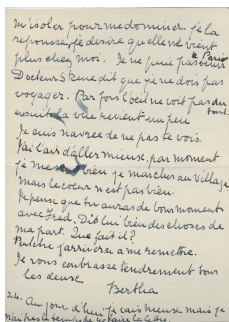 m'isoler pour me dominer je la
repousse, je désire qu'elle ne vient
plus chez moi. Je ne puis pas venir à Paris
Docteur dit que je ne dois pas
voyager. Par fois l'oeil ne voit pas du tout.
ensuite la vue revient un peu
Je suis navrée de ne pas te voir.
J'ai l'air d'aller mieux, par moment
je me bien je marche au village
mais le coeur n'est pas bien.
Je pense que tu auras de bons moments
avec Fred. Dit lui bien des choses de
ma part. Que fait il?
j'arriverai a me remettre.
Je vous embrasse tendrement tous
les deux
Bertha
24. Au jour d'hui je vais mieux mais je
n'ai pas le temps de la lettre.